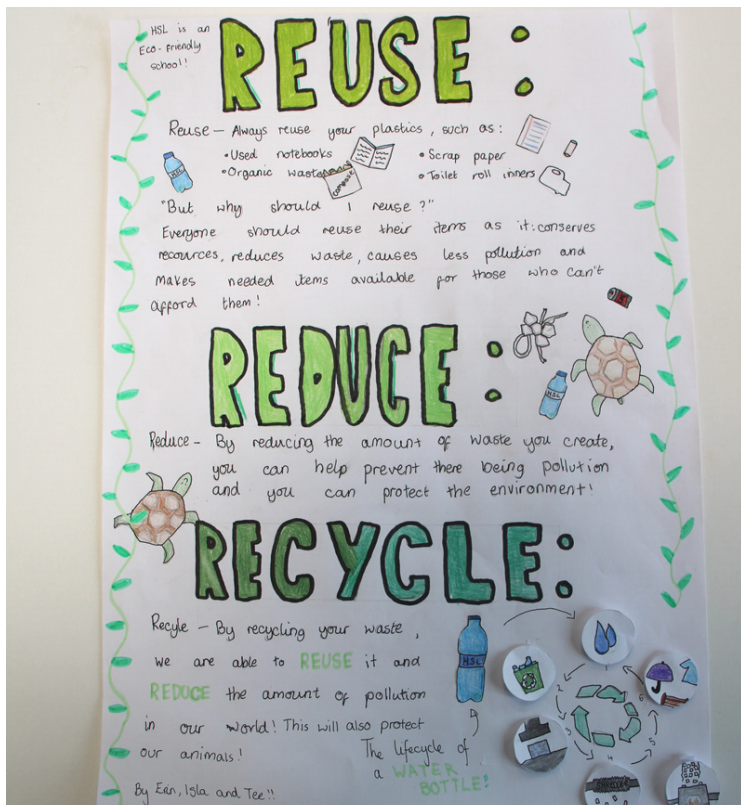 HSL is an
Eco-friendly
school!
REUSE:
Reuse – Always reuse your plastics, such as:
•Used notebooks
•Scrap paper
•Organic waste
•Toilet roll inners
compost
HSL
"But why should I reuse?"
Everyone should reuse their items as it: conserves
recources, reduces waste, causes less pollution and
makes needed items available for those who can't
afford them!
REDUCE:
Reduce – By reducing the amount of waste you create,
you can help prevent there being pollution
and you can protect the environment!
RECYCLE:
Recyle – By recycling your waste,
we are able to REUSE it and
REDUCE the amount of pollution
in our world! This will also protect
our animals!
By Erin, Isla and Tee!!
HSL
The lifecycle of
a WATER
BOTTLE!
1
2
3
4
5
6